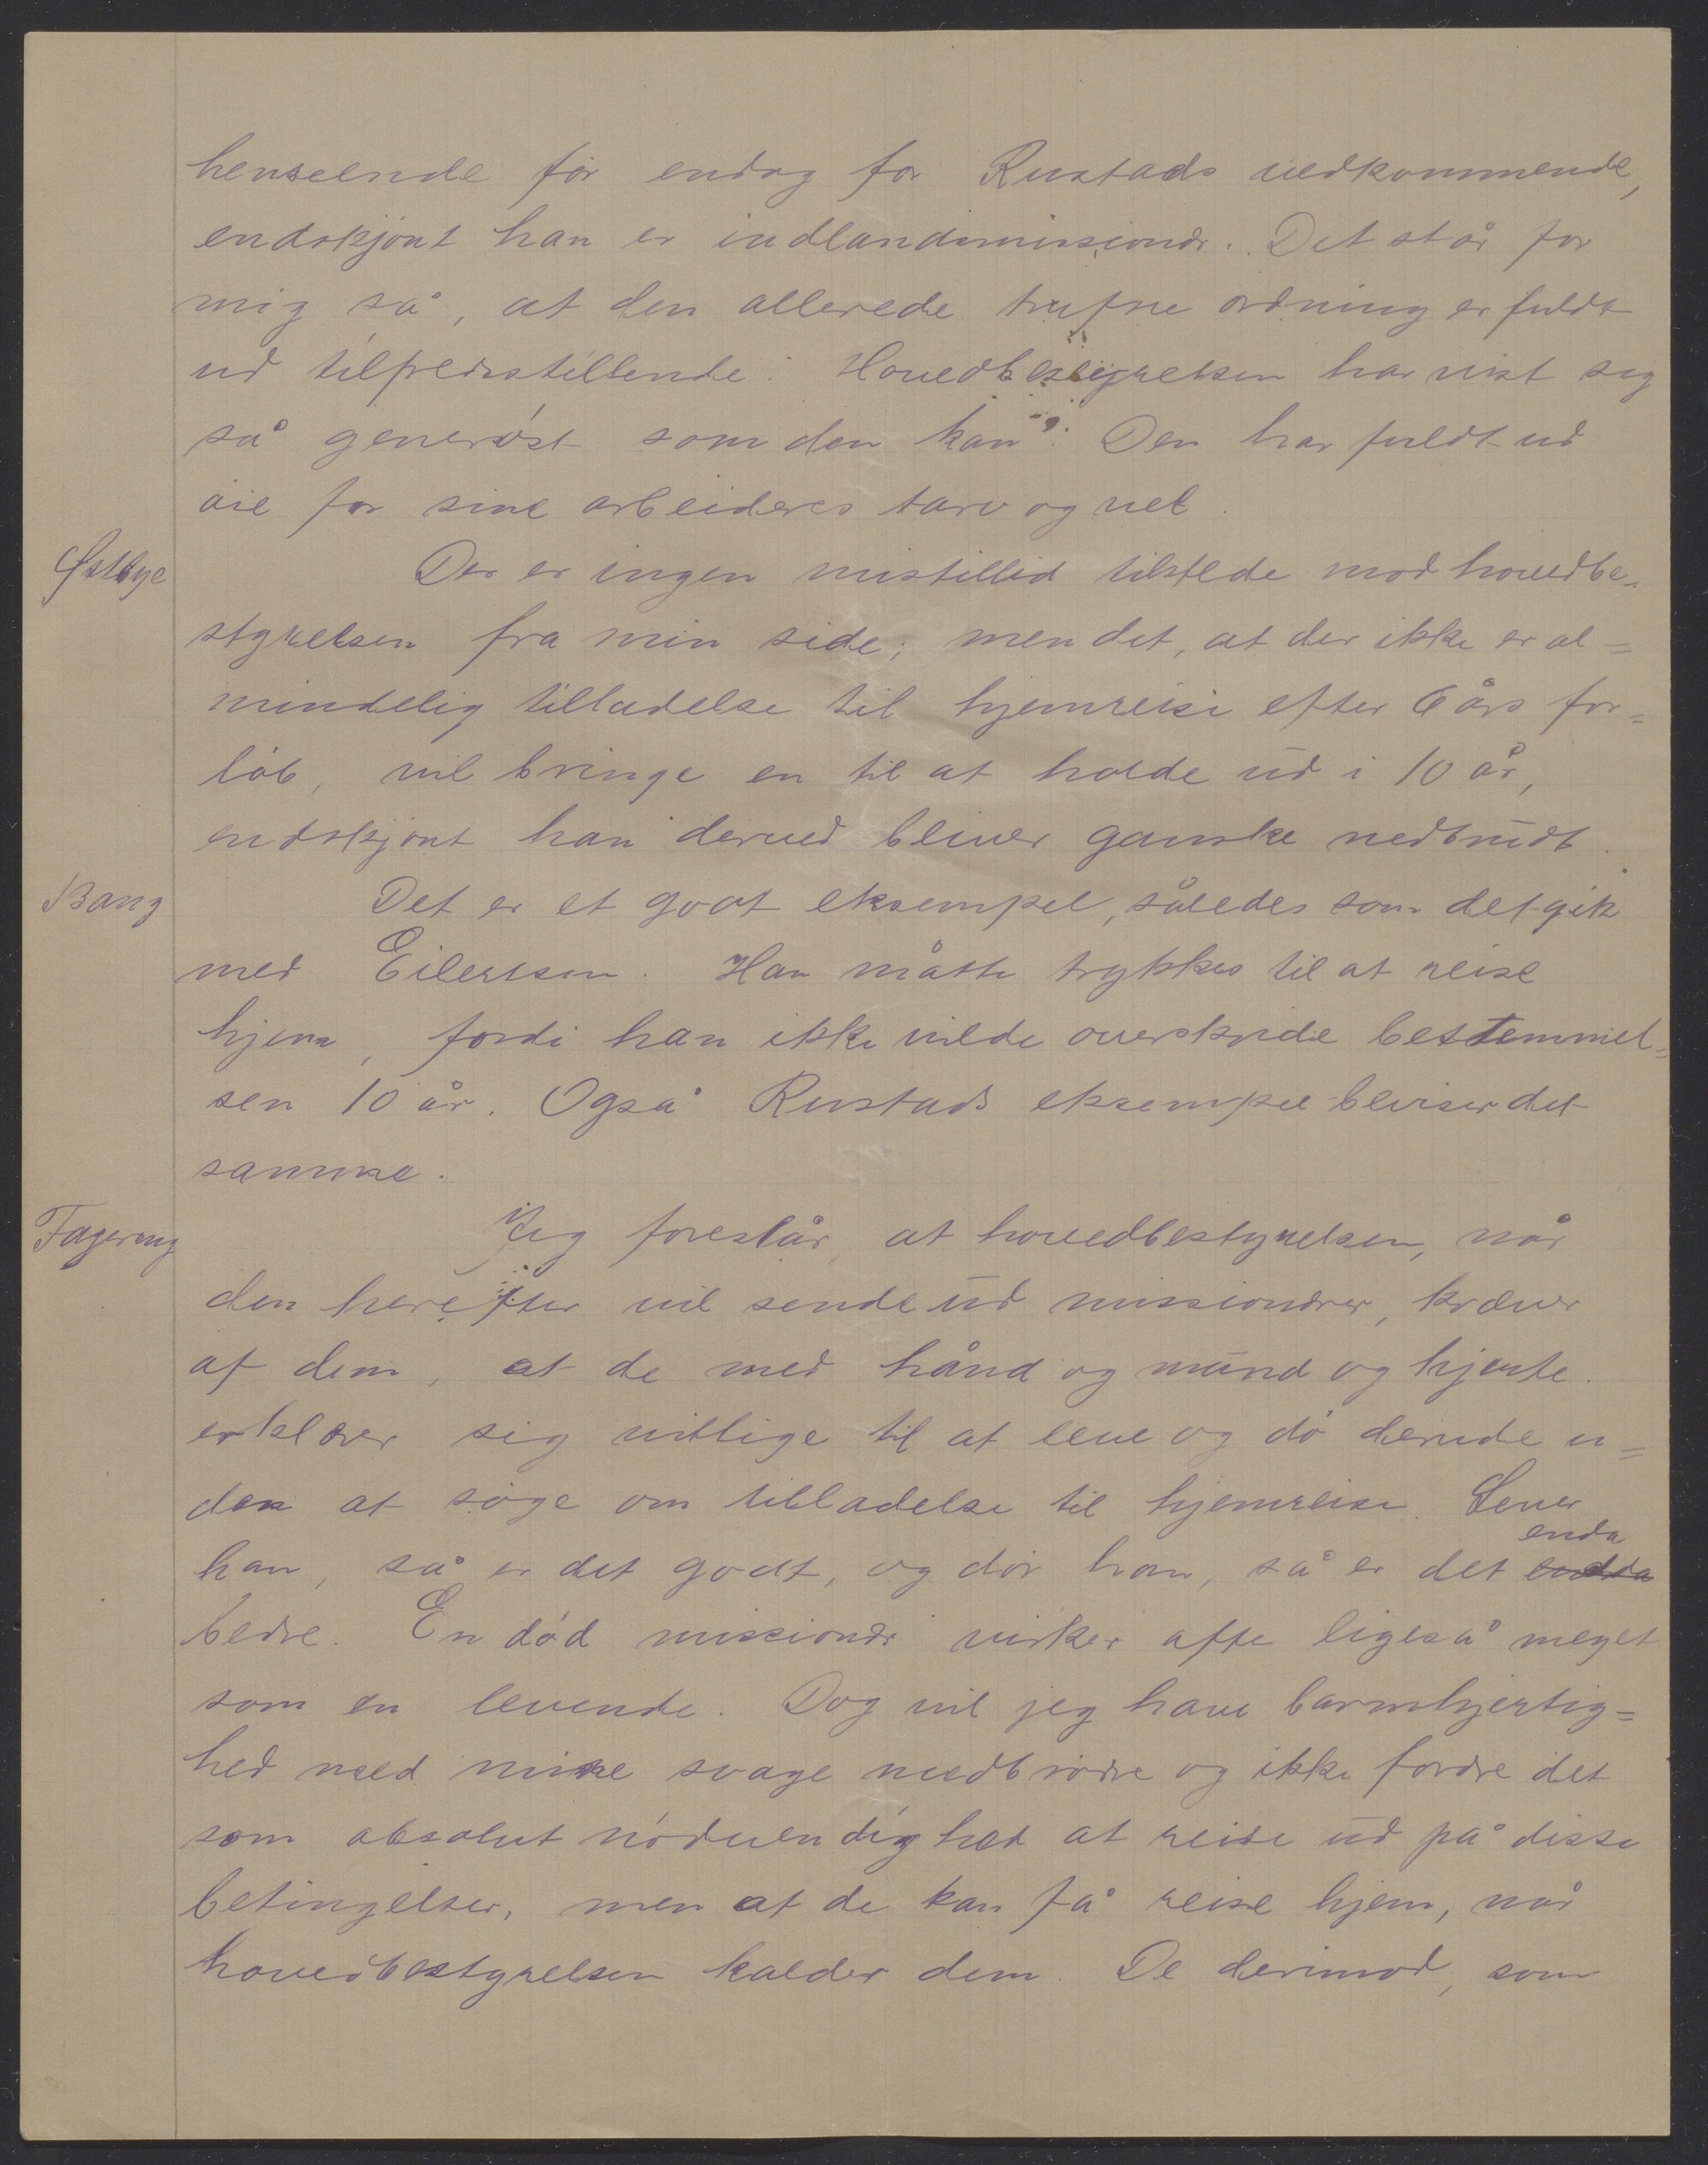 henseende før endog for Rustads vedkommende,
endskjønt han er indlandsmissionær. Det står for
mig så, at den allerede trufne ordning er fuldt
ud tilfredsstillende. Hovedbestyrelsen har vist sig
så generøst som den kan. Den har fuldt ud
øie for sine arbeideres tarv og vel.
Østbye
Der er ingen mistillid tilstede mod hovedbe-
styrelsen fra min side; men det, at der ikke er al=
mindelig tilladelse til hjemreise efter 6 års for=
løb, vil bringe en til at holde ud i 10 år,
endskjønt han derved bliver ganske nedbrudt.
Bang
Det er et godt eksempel, således som det gik
med Eilertsen. Han måtte trykkes til at reise
hjem, fordi han ikke vilde overskride bestemmel=
sen 10 år. Også Rustads eksempel beviser det
samme.
Fagereng
Jeg foreslår, at hovedbestyrelsen, når
den herefter vil sende ud missionærer, kræver
af dem, at de med hånd og mund og hjerte
erklærer sig villige til at leve og dø derude u=
den at søge om tilladelse til hjemreise. Lever
enda
han, så er det godt, og dør han, så er det endda
bedre. En død missionær virker ofte ligeså meget
som en levende. Dog vil jeg have barmhjertig=
hed med mine svage medbrødre og ikke fordre det
som absolut nødvendighed at reise ud på disse
betingelser, men at de kan få reise hjem, når
hovedbestyrelsen kalder dem. De derimod, som